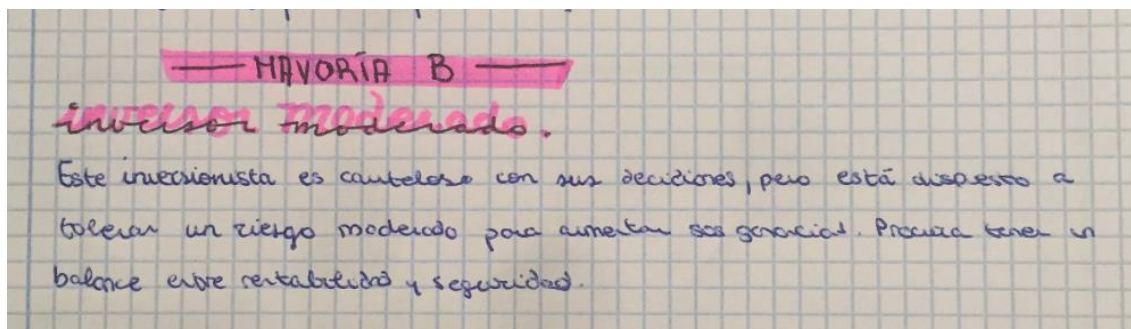 MAYORÍA B
inversor moderado.
Este inversionista es cauteloso con sus decisiones, pero está dispuesto a
tolerar un riesgo moderado para aumentar sus ganancias. Procura tener un
balance entre rentabilidad y seguridad.